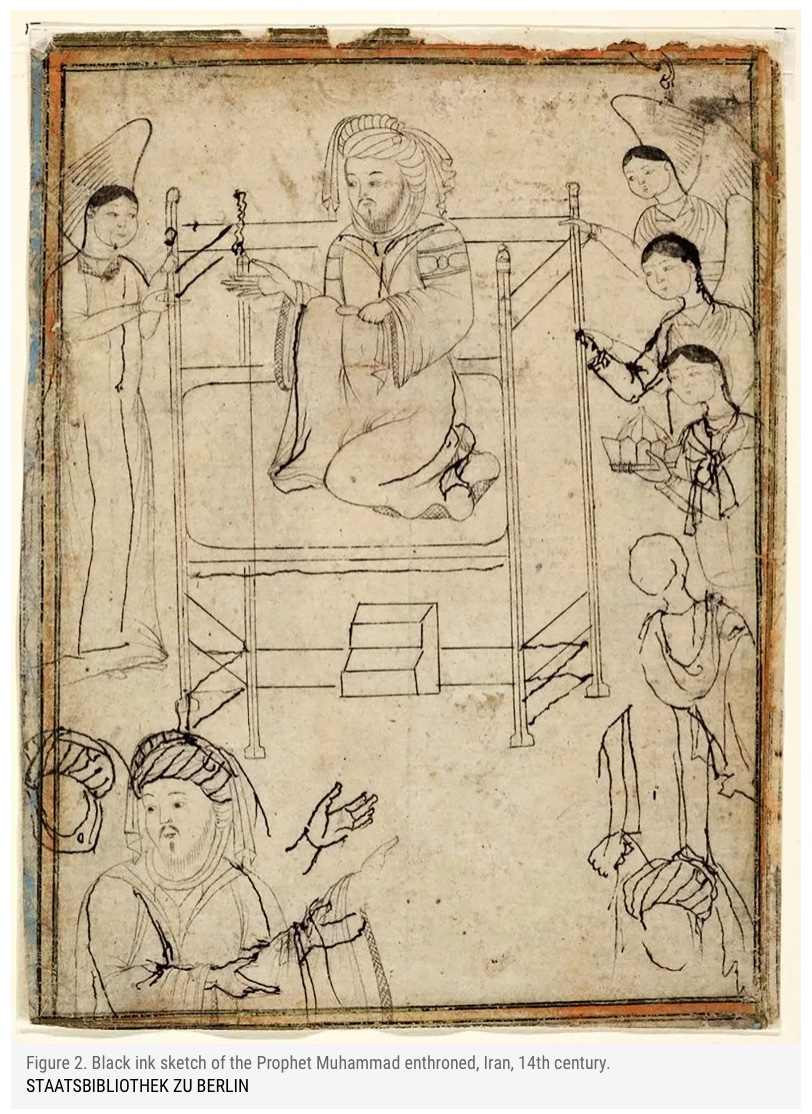 Figure 2. Black ink sketch of the Prophet Muhammad enthroned, Iran, 14th century.
STAATSBIBLIOTHEK ZU BERLIN